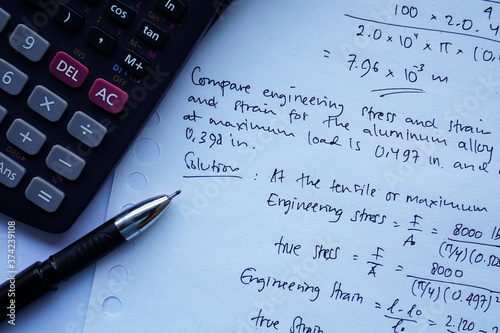 cos
tan
ln
sin
(
)
,
M+
9
DEL
AC
6
×
÷
+
−
Ans
=
100 × 2.0
2.0 × 10⁴ × π × (0.
= 7.96 × 10⁻³ m
Compare engineering stress and strain
and strain for the aluminum alloy
at maximum load is 0,497 in. and
0,398 in.
Solution : At the tensile or maximum
Engineering stress = F/A₀ = 8000 lb/(π/4)(0.50
true stress = F/A = 8000/(π/4)(0.497)²
Engineering strain = l-l₀/l₀ = 2.120
true strain
Adobe Stock | #374239108